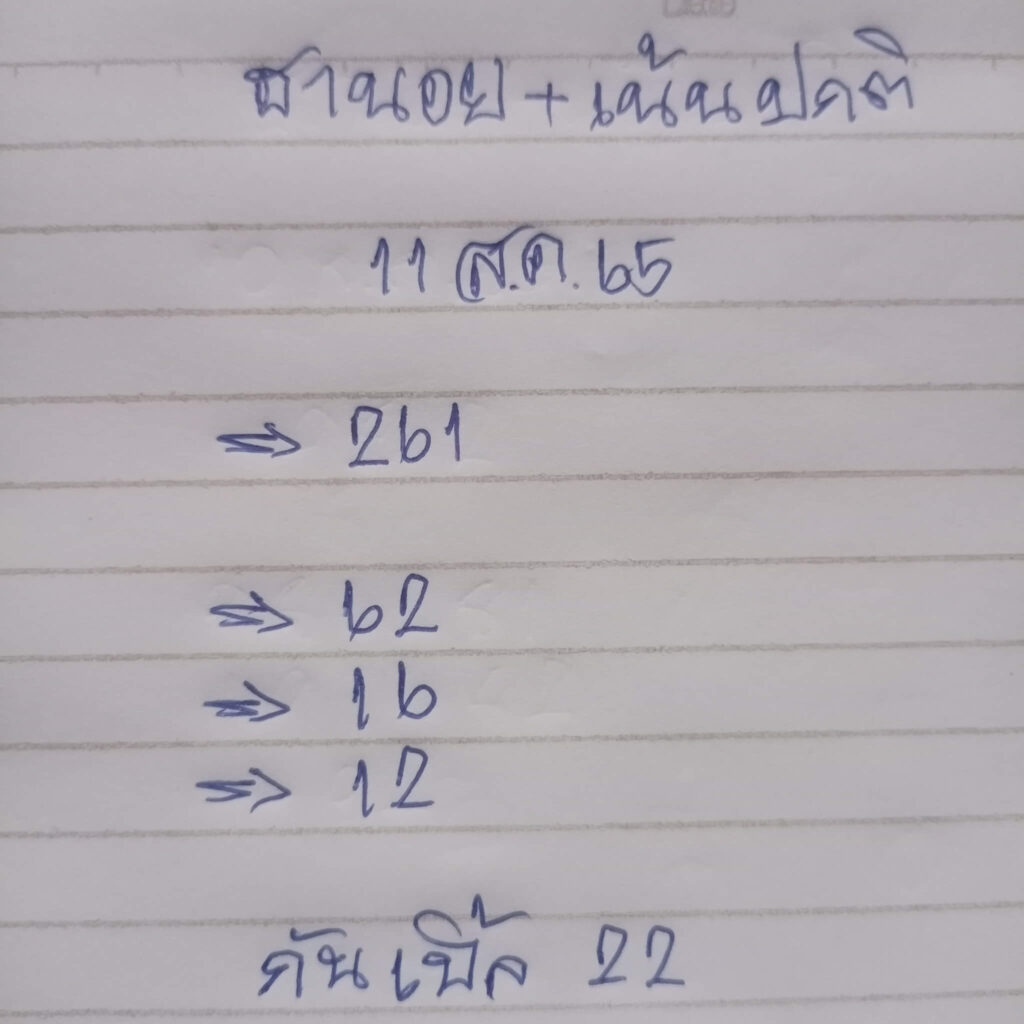 ฮานอย + เน้นปกติ
11 ส.ค. 65
⇒ 261
⇒ 62
⇒ 16
⇒ 12
กันเบิ้ล 22